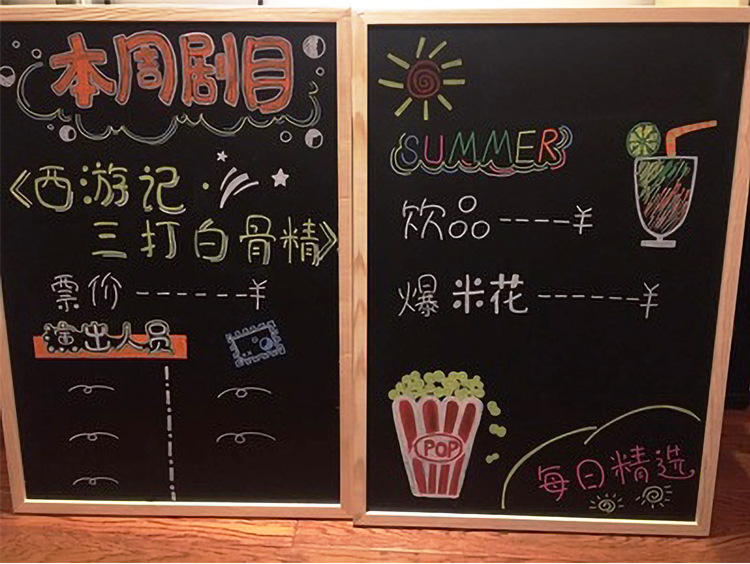 本周剧目
《西游记·
三打白骨精》
票价------¥
演出人员
SUMMER
饮品----¥
爆米花------¥
POP
每日精选